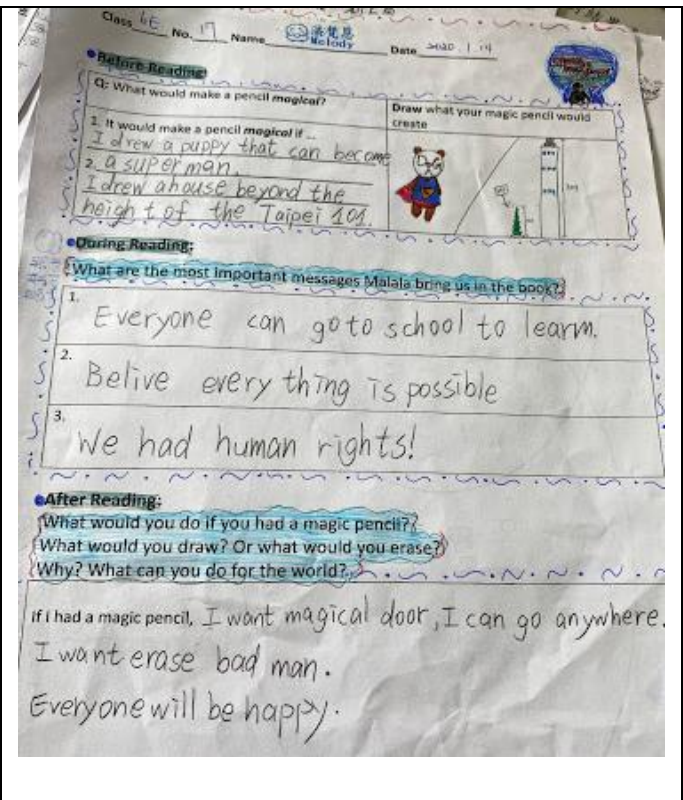 Class 6E No. 17 Name Melody Date 2020.1.14
Before Reading:
Q: What would make a pencil magical?
Draw what your magic pencil would
create
1. It would make a pencil magical if ...
I drew a puppy that can become
2. a superman.
I drew a house beyond the
height of the Taipei 101.
During Reading:
What are the most important messages Malala bring us in the book?
1.
Everyone can go to school to learm.
2.
Belive every thing is possible
3.
We had human rights!
After Reading:
What would you do if you had a magic pencil?
What would you draw? Or what would you erase?
Why? What can you do for the world?
If i had a magic pencil, I want magical door, I can go anywhere.
I want erase bad man.
Everyone will be happy.